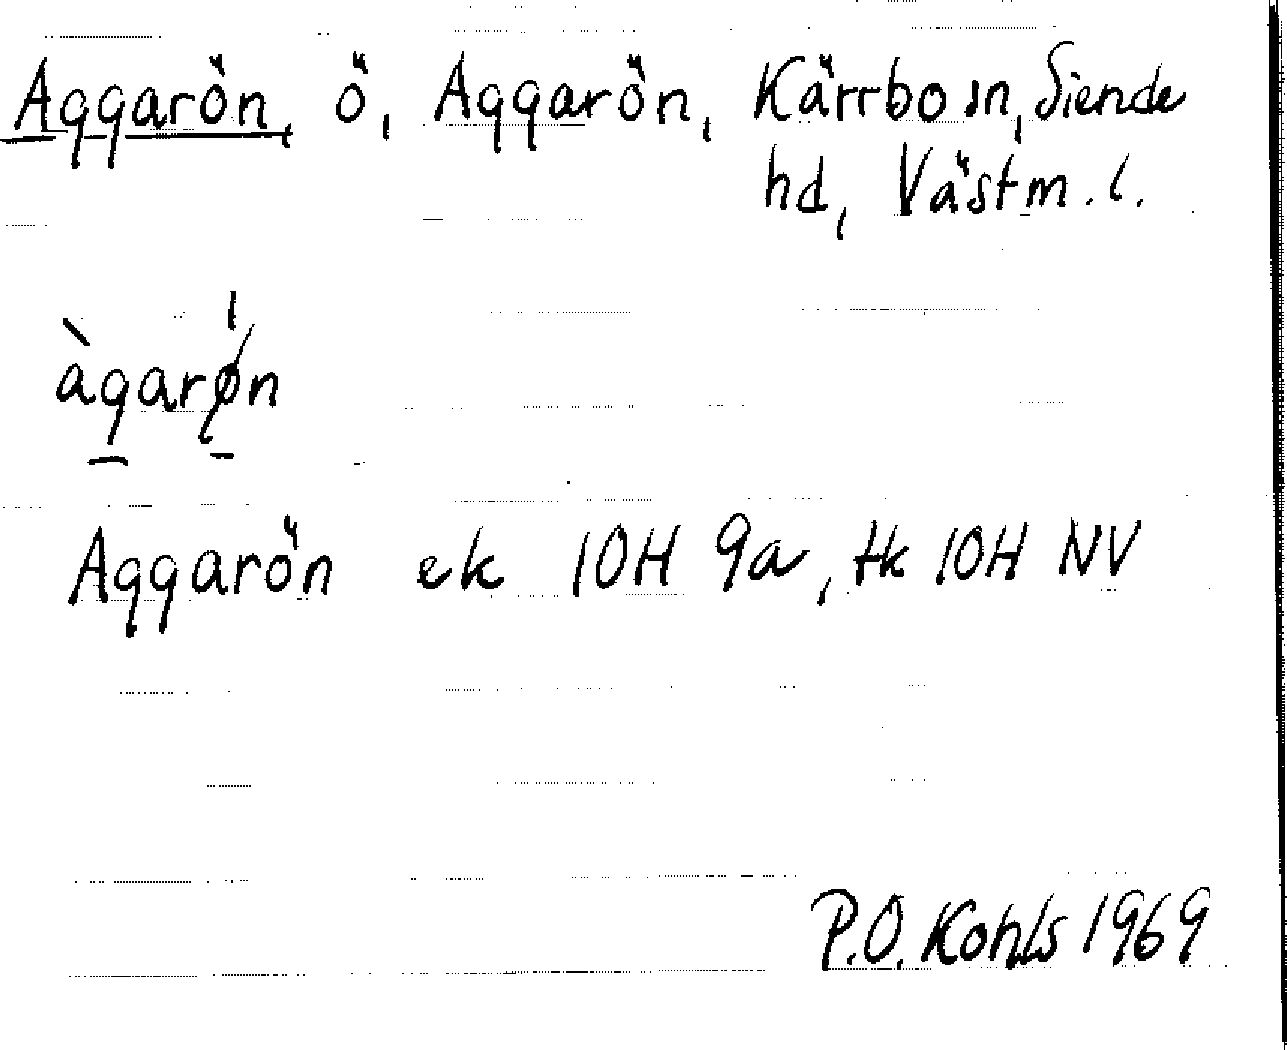 Aggarön, ö, Aggarön, Kärrbo sn, Siende
hd, Västm. l.
àgarø̀n
Aggarön ek 10H 9a, tk 10H NV
P.O. Kohls 1969